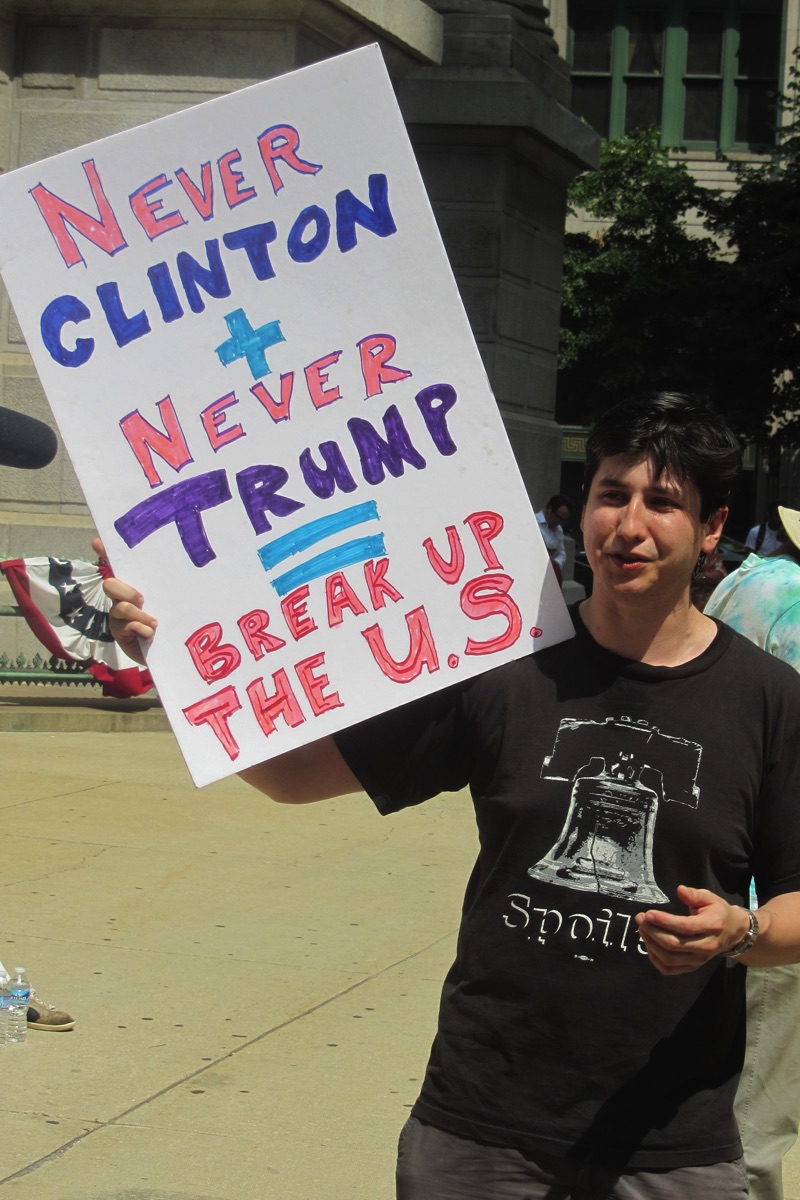 NEVER
CLINTON
+
NEVER
TRUMP
=
BREAK UP
THE U.S.